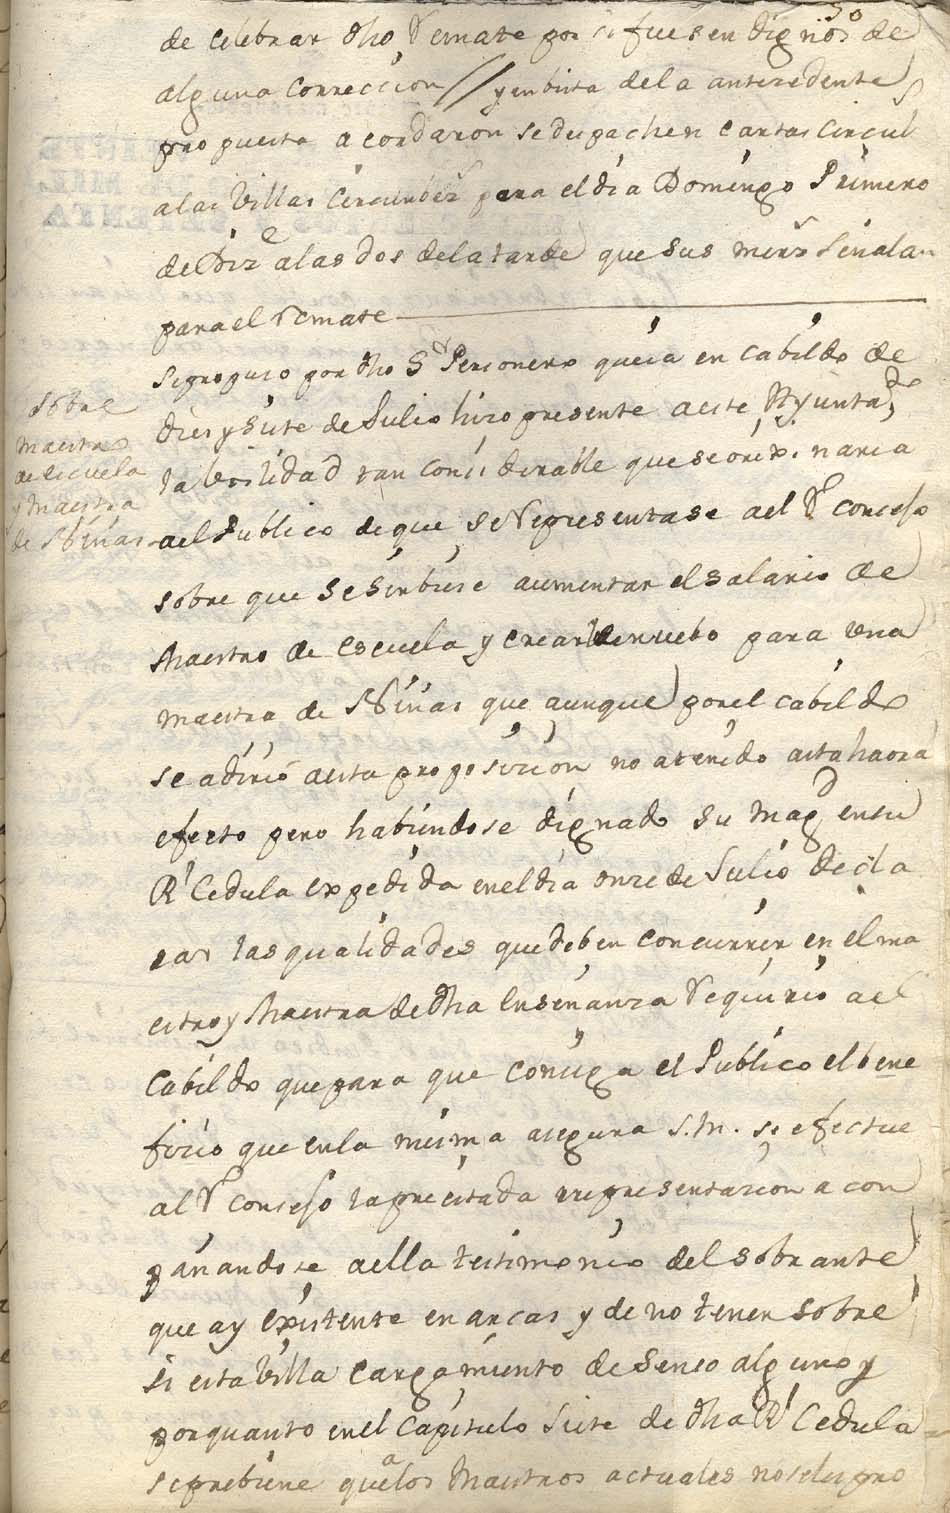 50
de celebrar dho Remate por si fuesen dignos de
alguna Correccion // y en bista de la antecedente
propuesta acordaron se despachen cartas Circul
a las Villas Circunbez.s para el dia Domingo Primero
de Diz.e a las dos de la tarde que sus merz.s señalan
para el remate
Se propuso por dho S.r Personero que ia en Cabildo de
dies y siete de Julio hizo presente a este Ayunta.to
la utilidad tan considerable que se orixinaria
Sobre
Maestro
de escuela
y Maestra
de Niñas
ael Publico de que se Representase ael R.l Consejo
sobre que se sirbiese aumentar el salario de
Maestro de escuela y crear de nuebo para una
maestra de Niñas que aunque por el cabildo
se adirió a esta proposizion no a tenido asta haora
efecto pero habiendose dignado su Mag.d en su
R.l Cedula expedida en el dia onze de Julio decla
rar las qualidades que deben concurrir en el ma
estro y Maestra de dha Enseñanza Requirio ael
Cabildo que para que consiga el Publico el bene
fizio que en la misma asegura S.M. se efectue
al R.l Consejo la precitada rrepresentazion acon
pañandose a ella testimonio del sobrante
que ay existente en arcas y de no tener sobre
si esta Villa cargamiento de Senso alguno y
por quanto en el Capitulo siete de dha R.l Cedula
se prebiene que a los Maestros actuales no se les pro